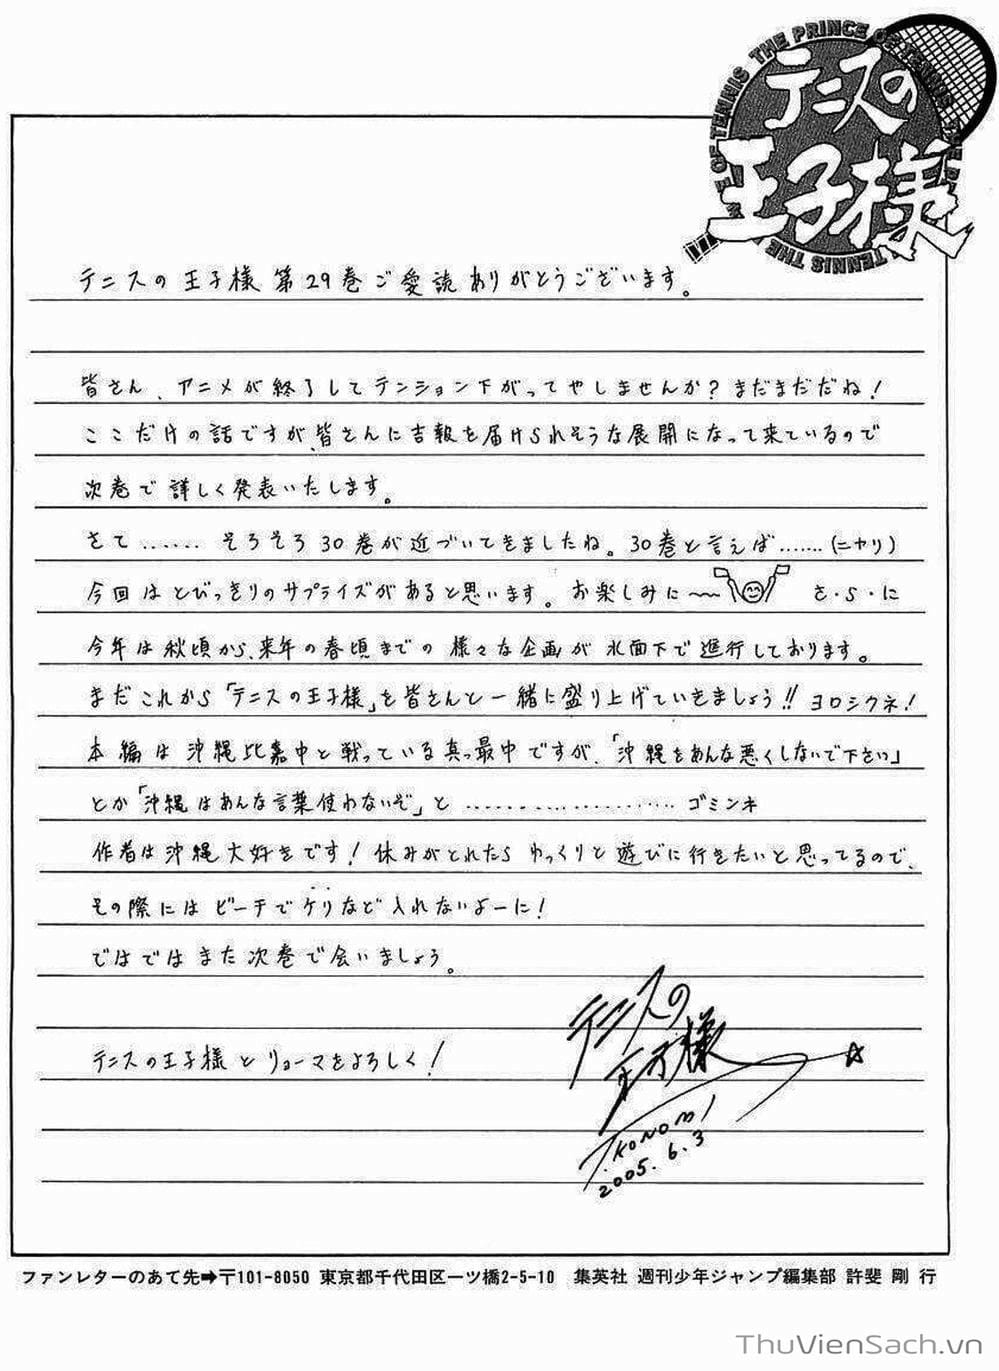 THE PRINCE OF TENNIS
テニスの
王子様
テニスの王子様第29巻ご愛読ありがとうございます。
皆さん、アニメが終了してテンション下がってやしませんか？まだまだだね！
ここだけの話ですが、皆さんに吉報を届けられそうな展開になって来ているので
次巻で詳しく発表いたします。
さて……そろそろ30巻が近づいてきましたね。30巻と言えば……(ニヤリ)
今回はとびっきりのサプライズがあると思います。お楽しみに〜〜 さ・ら・に
今年は秋頃から、来年の春頃までの様々な企画が水面下で進行しております。
まだこれから「テニスの王子様」を皆さんと一緒に盛り上げていきましょう!!ヨロシクネ！
本編は沖縄比嘉中と戦っている真っ最中ですが、「沖縄をあんな悪くしないで下さい」
とか「沖縄はあんな言葉使わないぞ」と…………………ゴミンネ
作者は沖縄大好きです！休みがとれたらゆっくりと遊びに行きたいと思ってるので、
その際にはビーチでケリなど入れないよーに！
ではではまた次巻で会いましょう。
テニスの王子様とリョーマをよろしく！
テニスの
王子様
T.KONOMI
2005.6.3
ファンレターのあて先➡〒101-8050 東京都千代田区一ツ橋2-5-10 集英社 週刊少年ジャンプ編集部 許斐 剛 行
ThuVienSach.vn